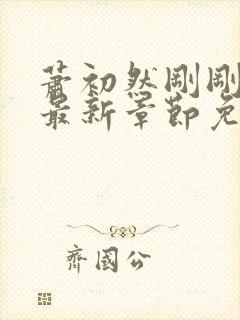 萧初然刚刚
最新章节免
齐国公